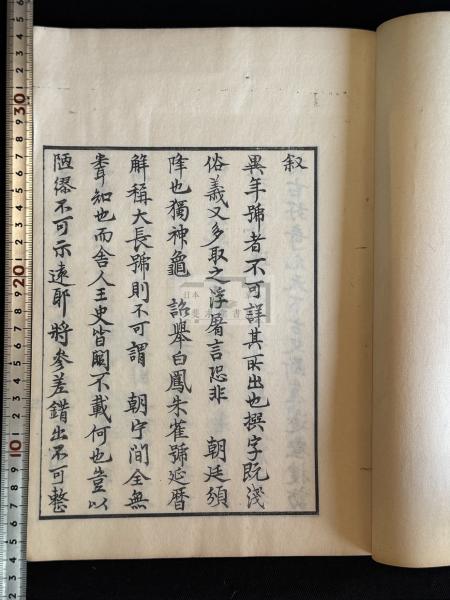 叙
異年號者不可詳其所出也撰字既淺
俗義又多取之浮屠言恐非　朝廷頒
降也獨神龜　詔舉白鳳朱雀號延暦
解稱大長號則不可謂　朝宁間全無
聞知也而舍人王史皆闕不載何也豈以
陋繆不可示遠耶將參差錯出不可整